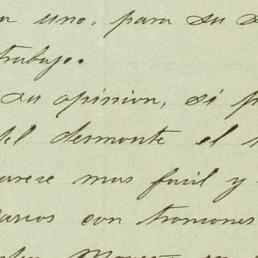 uno, para su
trabajo.
su opinion, si
del desmonte el
parece mas facil y
varios con tromones